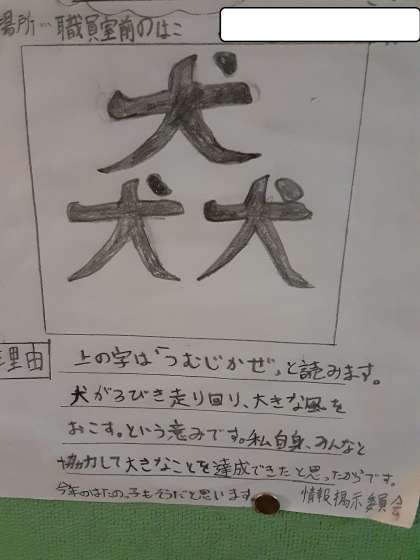 場所…職員室前のはこ
犬
犬犬
理由
上の字は「つむじかぜ」と読みます。
犬が3びき走り回り、大きな風を
おこす。という意みです。私自身、みんなと
協力して大きなことを達成できたと思ったからです。
今年のはたの、子もそうだと思います。
情報掲示委員会